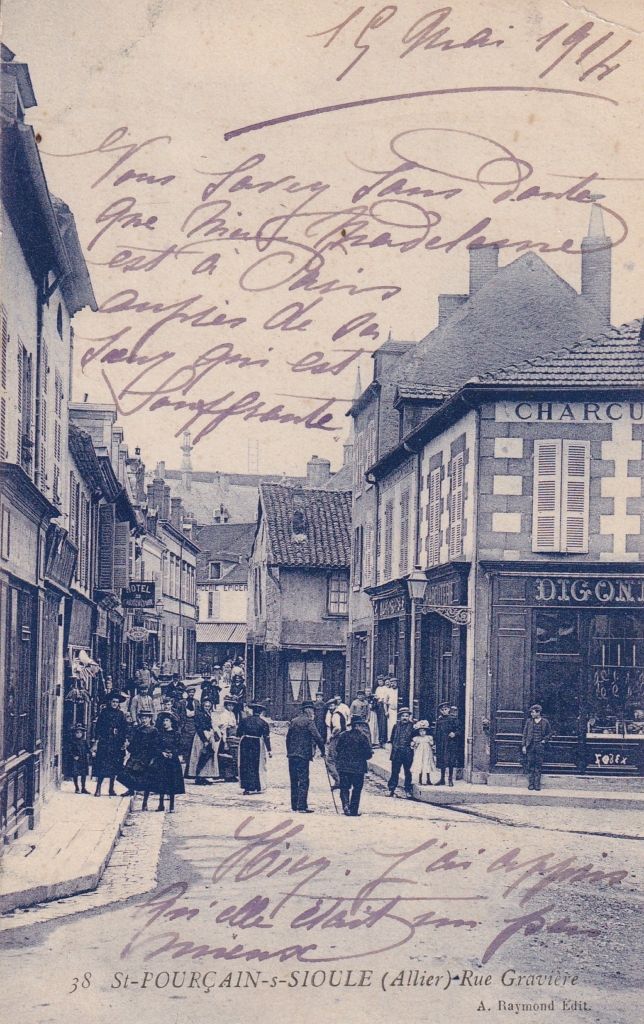 15 Mai 1914
Vous Savez Sans doute
que Madeleine
est à Paris
auprès de sa
Sœur qui est
Souffrante
CHARCU
HOTEL
EPICER
DIGON
Hier. j'ai appris
qu'elle était un peu
mieux.
38 St-POURÇAIN-s-SIOULE (Allier) Rue Gravière
A. Raymond Édit.